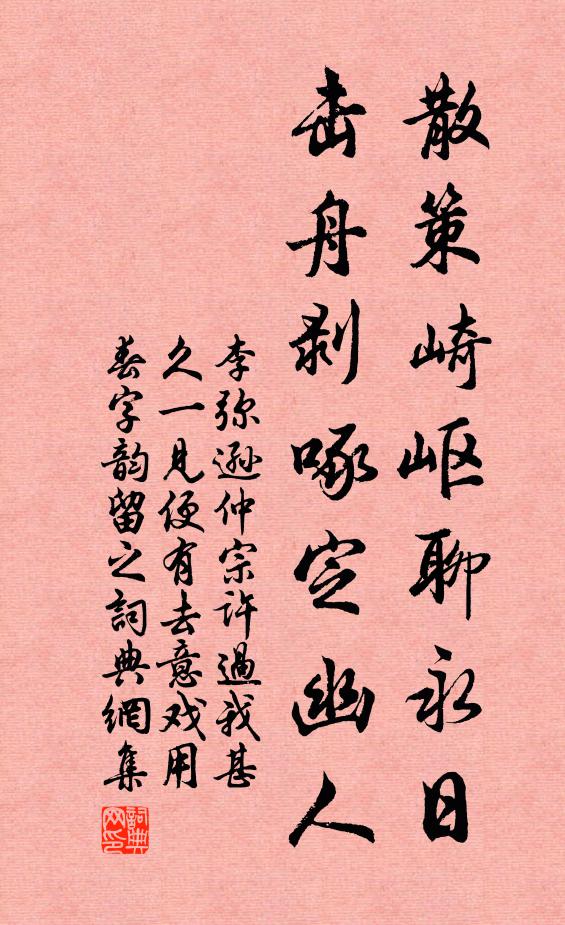 散策崎岖聊永日
击舟剥啄定幽人
李弥遜仲宗许過我甚
久一見便有去意戏用
春字韵留之詞典網集
詞典网印